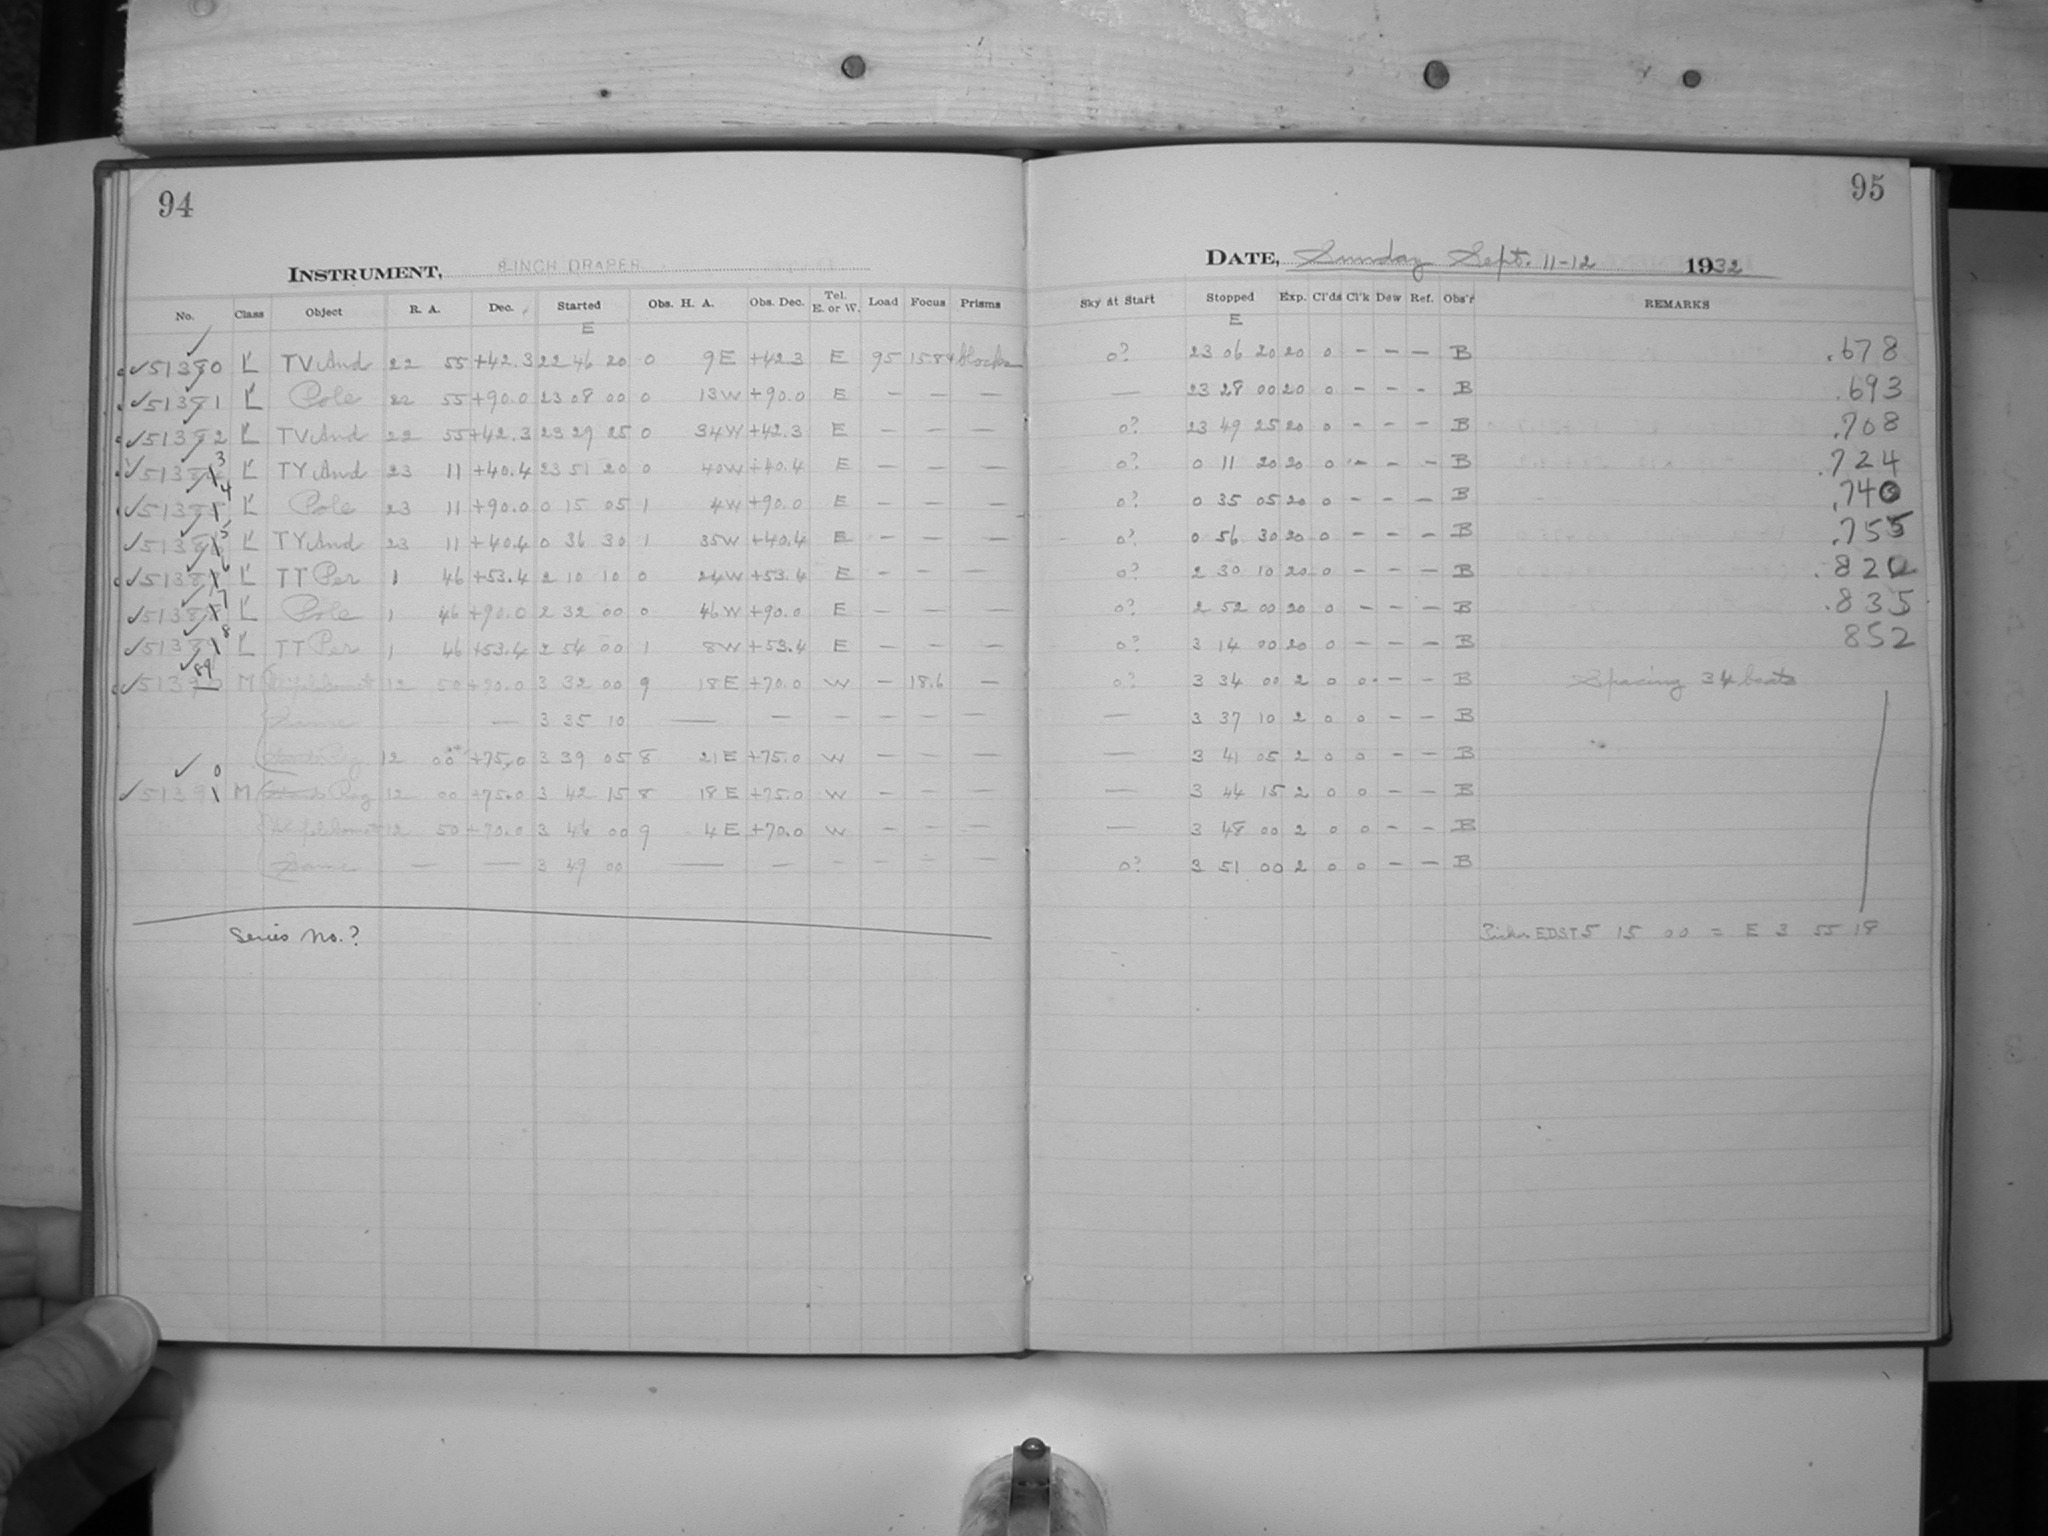 94
INSTRUMENT, 8-INCH DRAPER
No. Class Object R. A. Dec. Started Obs. H. A. Obs. Dec. Tel. E. or W. Load Focus Prisms
E
51380 L' TV And 22 55 +42.3 22 46 20 0 9E +42.3 E 95 1584 blocks
51381 L' Pole 22 55 +90.0 23 08 00 0 13W +90.0 E — — —
51382 L' TV And 22 55 +42.3 23 29 25 0 34W +42.3 E — — —
3 L' TY And 23 11 +40.4 23 51 20 0 40W +40.4 E — — —
4 L' Pole 23 11 +90.0 0 15 05 1 4W +90.0 E — — —
5 L' TY And 23 11 +40.4 0 36 30 1 35W +40.4 E — — —
6 L' TT Per 1 46 +53.4 2 10 10 0 24W +53.4 E — — —
7 L' Pole 1 46 +90.0 2 32 00 0 46W +90.0 E — — —
8 L' TT Per 1 46 +53.4 2 54 00 1 8W +53.4 E — — —
89 M 12 50 +70.0 3 32 00 9 18E +70.0 W — 18.6 —
Same — — 3 35 10 — — — — — —
12 00 +75.0 3 39 05 8 21E +75.0 W — — —
0 M 12 00 +75.0 3 42 15 8 18E +75.0 W — — —
12 50 +70.0 3 46 00 9 4E +70.0 W — — —
Same — — 3 49 00 — — — — — —
Series No.?
95
DATE, Sunday Sept. 11-12 1932
Sky at Start Stopped Exp. Cl'ds Cl'k Dew Ref. Obs'r REMARKS
E
0? 23 06 20 20 0 — — — B .678
— 23 28 00 20 0 — — — B .693
0? 23 49 25 20 0 — — — B .708
0? 0 11 20 20 0 — — — B .724
0? 0 35 05 20 0 — — — B .740
0? 0 56 30 20 0 — — — B .755
0? 2 30 10 20 0 — — — B
0? 2 52 00 20 0 — — — B .835
0? 3 14 00 20 0 — — — B 852
0? 3 34 00 2 0 0 — — B Spacing 34 beats
— 3 37 10 2 0 0 — — B
— 3 41 05 2 0 0 — — B
— 3 44 15 2 0 0 — — B
— 3 48 00 2 0 0 — — B
0? 3 51 00 2 0 0 — — B
EDST 5 15 00 = E 3 55 18